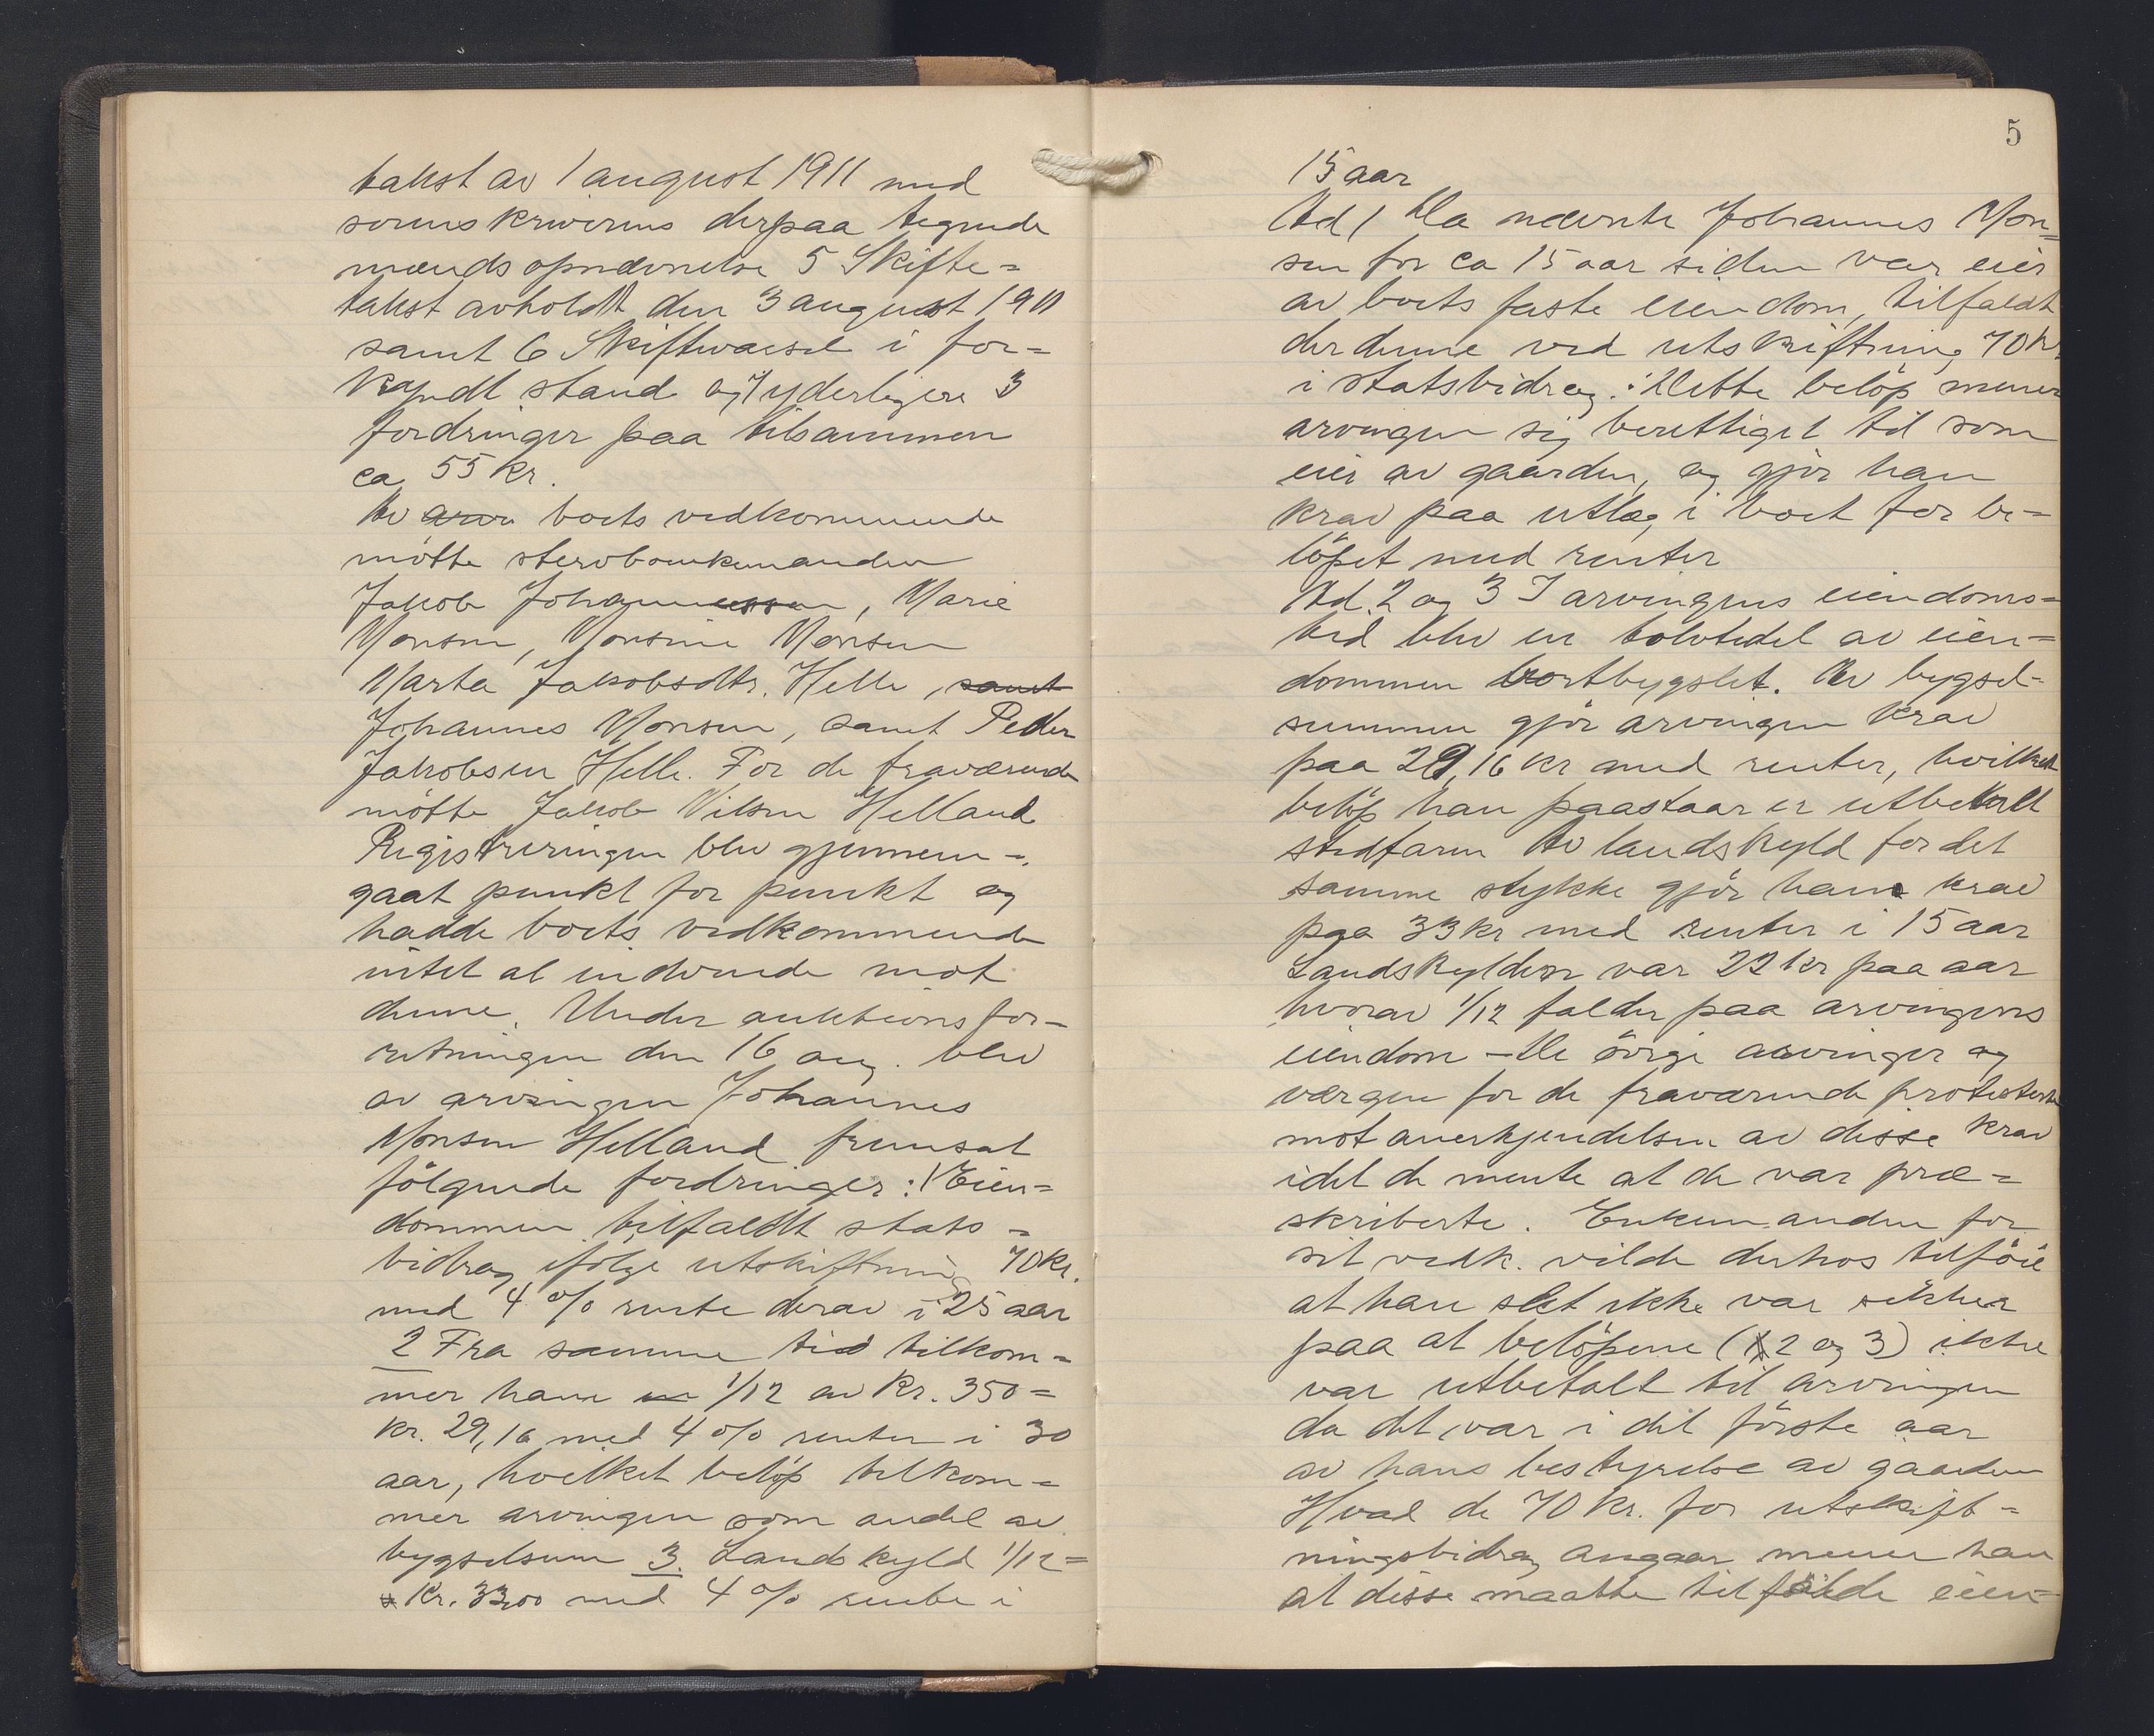 takst av 1 august 1911 med
sorenskriverens derpaa tegnede
mændsopnævnelse 5 Skifte=
takst avholdt den 3 august 1911
samt 6 Skiftevarsel i for=
kyndt stand og 7 yderligere 3
fordringer paa tilsammen
ca 55 kr.
Av boets vedkommende
møtte stervboenkemanden
Jakob Johannessen, Marie
Monsen, Monsine Monsen
Marta Jakobsdtr. Helle, samt
Johannes Monsen, samt Peder
Jakobsen Helle. For de fraværende
møtte Jakob Nilsen Helland
Registreringen blev gjennem=
gaat punkt for punkt og
hadde boets vedkommende
intet at indvende mot
denne. Under auktionsfor=
retningen den 16 aug. blev
av arvingen Johannes
Monsen Helland fremsat
følgende fordringer: 1 Eien=
dommen tilfaldt stats=
bidrag ifølge utskiftning 70 kr.
med 4 % rente derav i 25 aar
2 Fra samme tid tilkom=
mer ham 1/12 av kr. 350=
kr. 29,16 med 4 % renter i 30
aar, hvilket beløp tilkom=
mer arvingen som andel av
bygselsum 3. Landskyld 1/12=
kr. 33,00 med 4 % rente i
5
15 aar
Ad 1 Da nævnte Johannes Mon=
sen for ca 15 aar siden var eier
av boets faste eiendom, tilfaldt
der denne ved utskiftning 70 kr.
i statsbidrag. Dette beløp mener
arvingen sig berettiget til som
eier av gaarden, og gjør han
krav paa utlæg i boet for be=
løpet med renter
Ad. 2 og 3 I arvingens eiendoms=
tid blev en tolvtedel av eien=
dommen bortbygslet. Av bygsel=
summen gjør arvingen krav
paa 29,16 kr med renter, hvilket
beløp han paastaar er utbetalt
stedfaren Av landskyld for det
samme stykke gjør han krav
paa 33 kr med renter i 15 aar
Landskylden var 22 kr paa aar
hvorav 1/12 falder paa arvingens
eiendom - De øvrige arvinger og
værgen for de fraværende protesterte
mot anerkjendelsen av disse krav
idet de mente at de var præ=
skriberte. Enkemanden for
sit vedk. vilde derhos tilføie
at han slet ikke var sikker
paa at beløpene (2 og 3) ikke
var utbetalt til arvingen
da det var i det første aar
av hans bestyrelse av gaarden
Hvad de 70 kr. for utskift=
ningsbidrag angaar mener han
at disse maatte tilfalde eien=